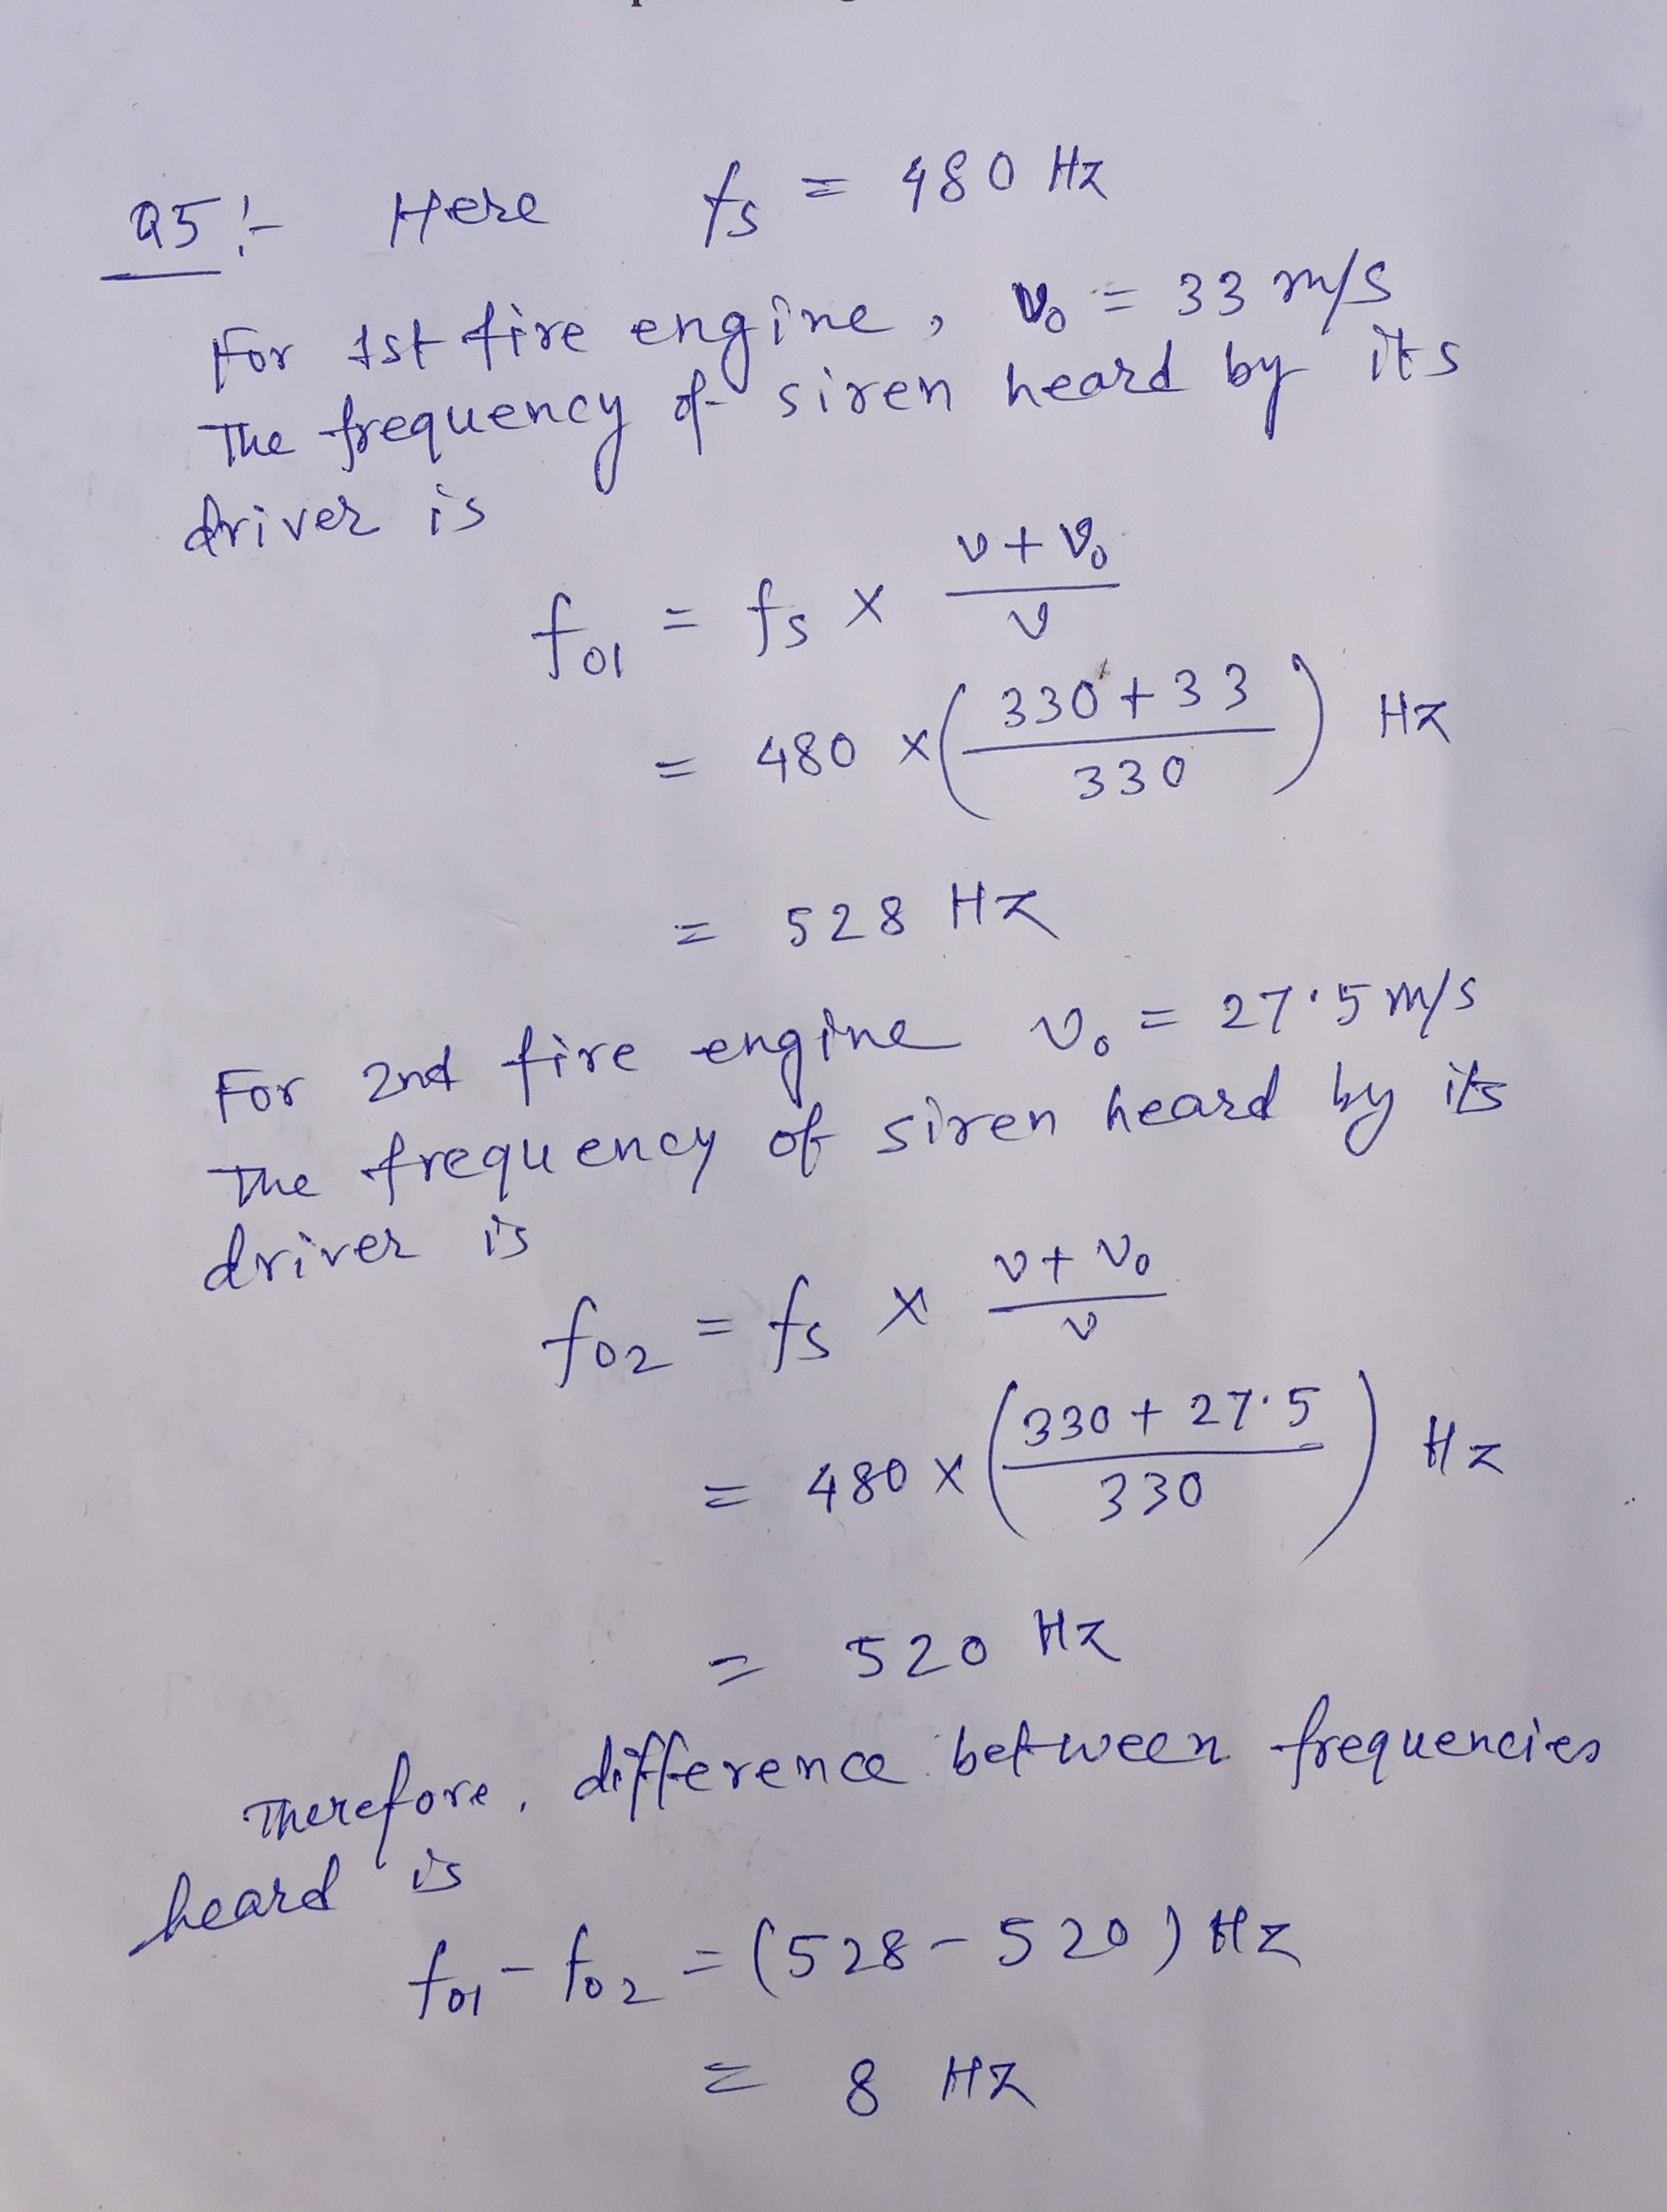 Q5:- Here fs = 480 Hz
For 1st fire engine, v₀ = 33 m/s
The frequency of siren heard by its
driver is
f₀₁ = fs × (v + v₀)/v
= 480 × ((330 + 33)/330) Hz
= 528 Hz
For 2nd fire engine v₀ = 27.5 m/s
The frequency of siren heard by its
driver is
f₀₂ = fs × (v + v₀)/v
= 480 × ((330 + 27.5)/330) Hz
= 520 Hz
Therefore, difference between frequencies
heard is
f₀₁ - f₀₂ = (528 - 520) Hz
= 8 Hz